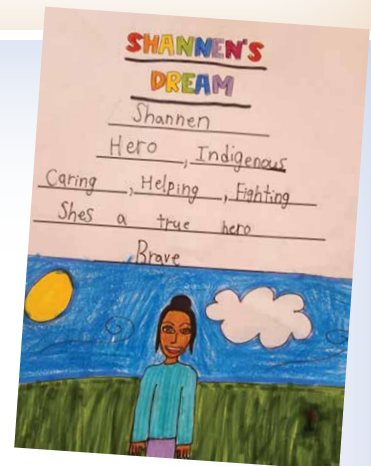 SHANNEN'S
DREAM
Shannen
Hero, Indigenous
Caring, Helping, Fighting
Shes a true hero
Brave